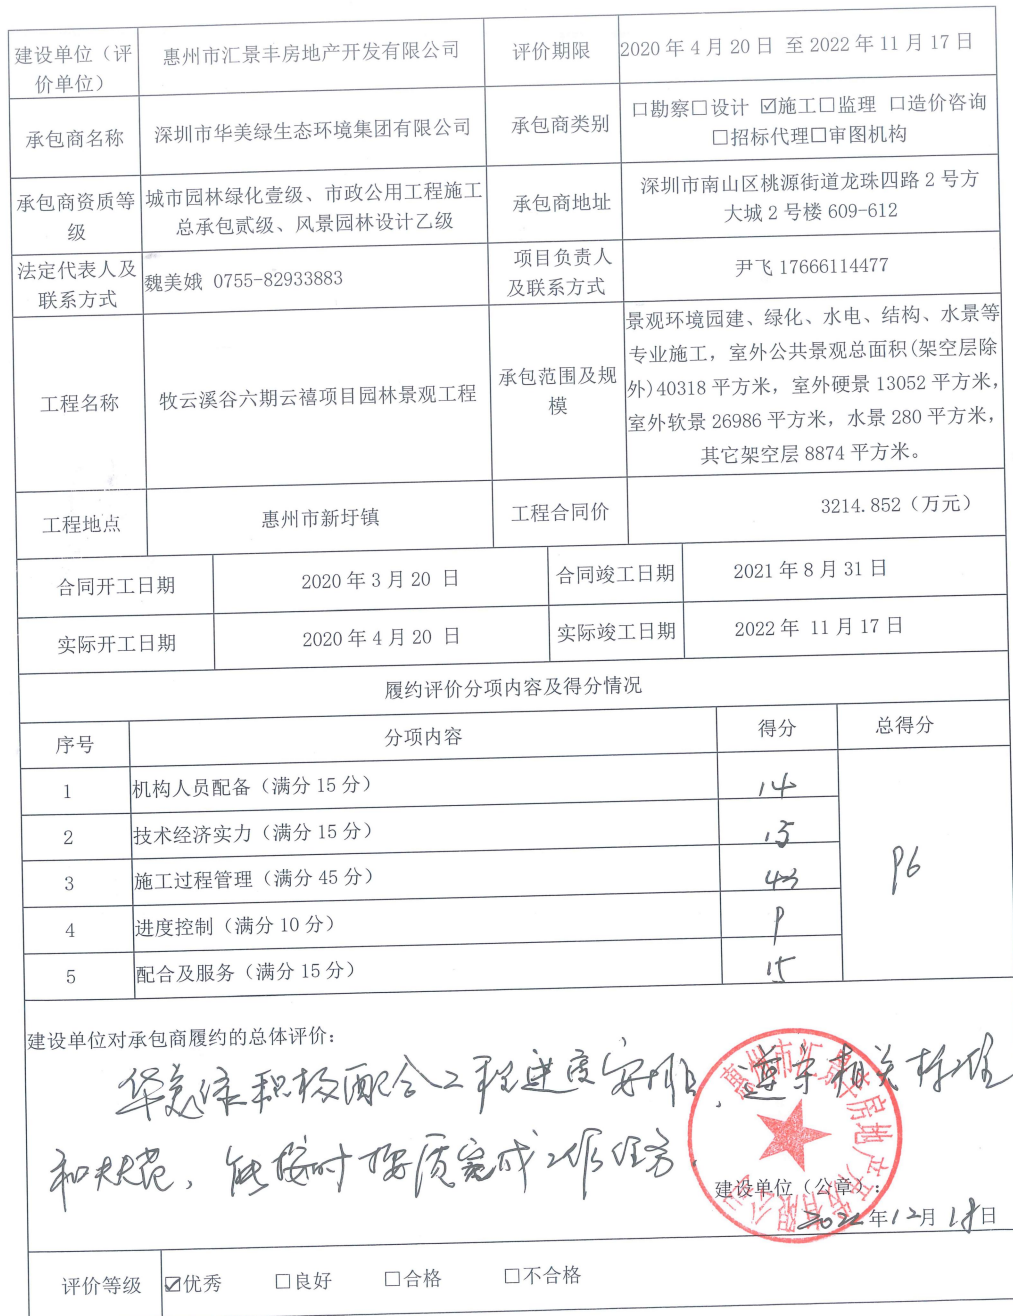 建设单位（评
价单位）
惠州市汇景丰房地产开发有限公司
评价期限
2020 年 4 月 20 日 至 2022 年 11 月 17 日
承包商名称
深圳市华美绿生态环境集团有限公司
承包商类别
□勘察□设计 ☑施工□监理 □造价咨询
□招标代理□审图机构
承包商资质等
级
城市园林绿化壹级、市政公用工程施工
总承包贰级、风景园林设计乙级
承包商地址
深圳市南山区桃源街道龙珠四路 2 号方
大城 2 号楼 609-612
法定代表人及
联系方式
魏美娥 0755-82933883
项目负责人
及联系方式
尹飞 17666114477
工程名称
牧云溪谷六期云禧项目园林景观工程
承包范围及规
模
景观环境园建、绿化、水电、结构、水景等
专业施工，室外公共景观总面积(架空层除
外)40318 平方米，室外硬景 13052 平方米，
室外软景 26986 平方米，水景 280 平方米，
其它架空层 8874 平方米。
工程地点
惠州市新圩镇
工程合同价
3214.852（万元）
合同开工日期
2020 年 3 月 20 日
合同竣工日期
2021 年 8 月 31 日
实际开工日期
2020 年 4 月 20 日
实际竣工日期
2022 年 11 月 17 日
履约评价分项内容及得分情况
序号
分项内容
得分
总得分
1
机构人员配备（满分 15 分）
14
2
技术经济实力（满分 15 分）
15
3
施工过程管理（满分 45 分）
43
4
进度控制（满分 10 分）
9
5
配合及服务（满分 15 分）
15
96
建设单位对承包商履约的总体评价：
华美绿积极配合工程进度安排，遵守相关标准
和规范，能按时按质完成工作任务。
惠州市汇景丰房地产开发有限公司
建设单位（公章）：
2022年12月18日
评价等级
☑优秀
□良好
□合格
□不合格